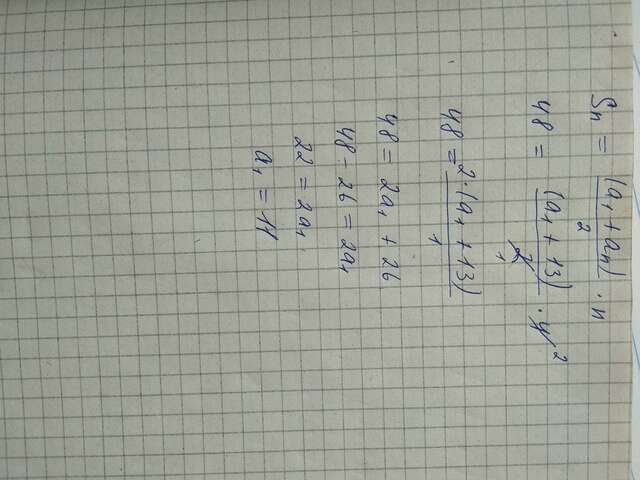 Sn = (a₁ + an) / 2 · n
48 = (a₁ + 13) / 2 1 · 4 2
48 = 2 · (a₁ + 13) / 1
48 = 2a₁ + 26
48 - 26 = 2a₁
22 = 2a₁
a₁ = 11